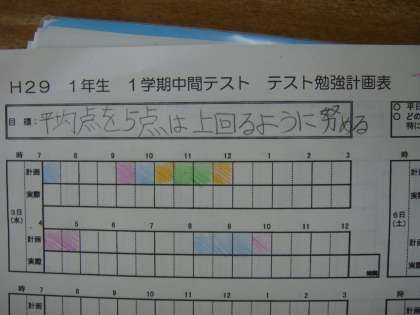 H29 1年生 1学期中間テスト テスト勉強計画表
目標: 平均点を5点は上回るように努める
○ 平日
○ どの
特に
時 7 8 9 10 11 12 1 2 3
計画
実際
3日
(水)
4 5 6 7 8 9 10 11 12
計画
実際
時間
時 7
計画
実際
6日
(土)
計画
実際